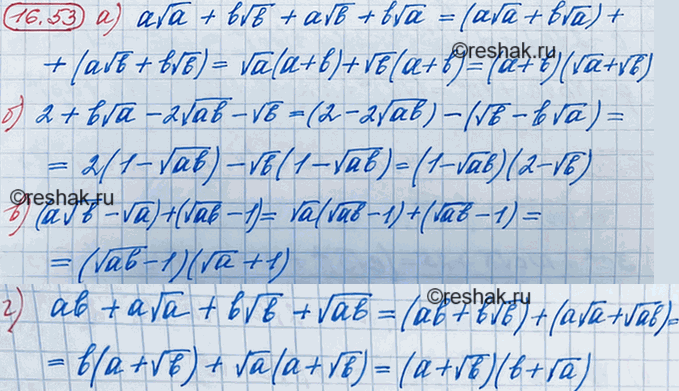 16.53 а) a√a + b√b + a√b + b√a = (a√a + b√a) +
+ (a√b + b√b) = √a(a+b) + √b(a+b) = (a+b)(√a+√b)
©reshak.ru
б) 2 + b√a - 2√ab - √b = (2 - 2√ab) - (√b - b√a) =
= 2(1 - √ab) - √b(1 - √ab) = (1 - √ab)(2 - √b)
©reshak.ru
в) (a√b - √a) + (√ab - 1) = √a(√ab - 1) + (√ab - 1) =
= (√ab - 1)(√a + 1)
©reshak.ru
г) ab + a√a + b√b + √ab = (ab + b√b) + (a√a + √ab) =
= b(a + √b) + √a(a + √b) = (a + √b)(b + √a)